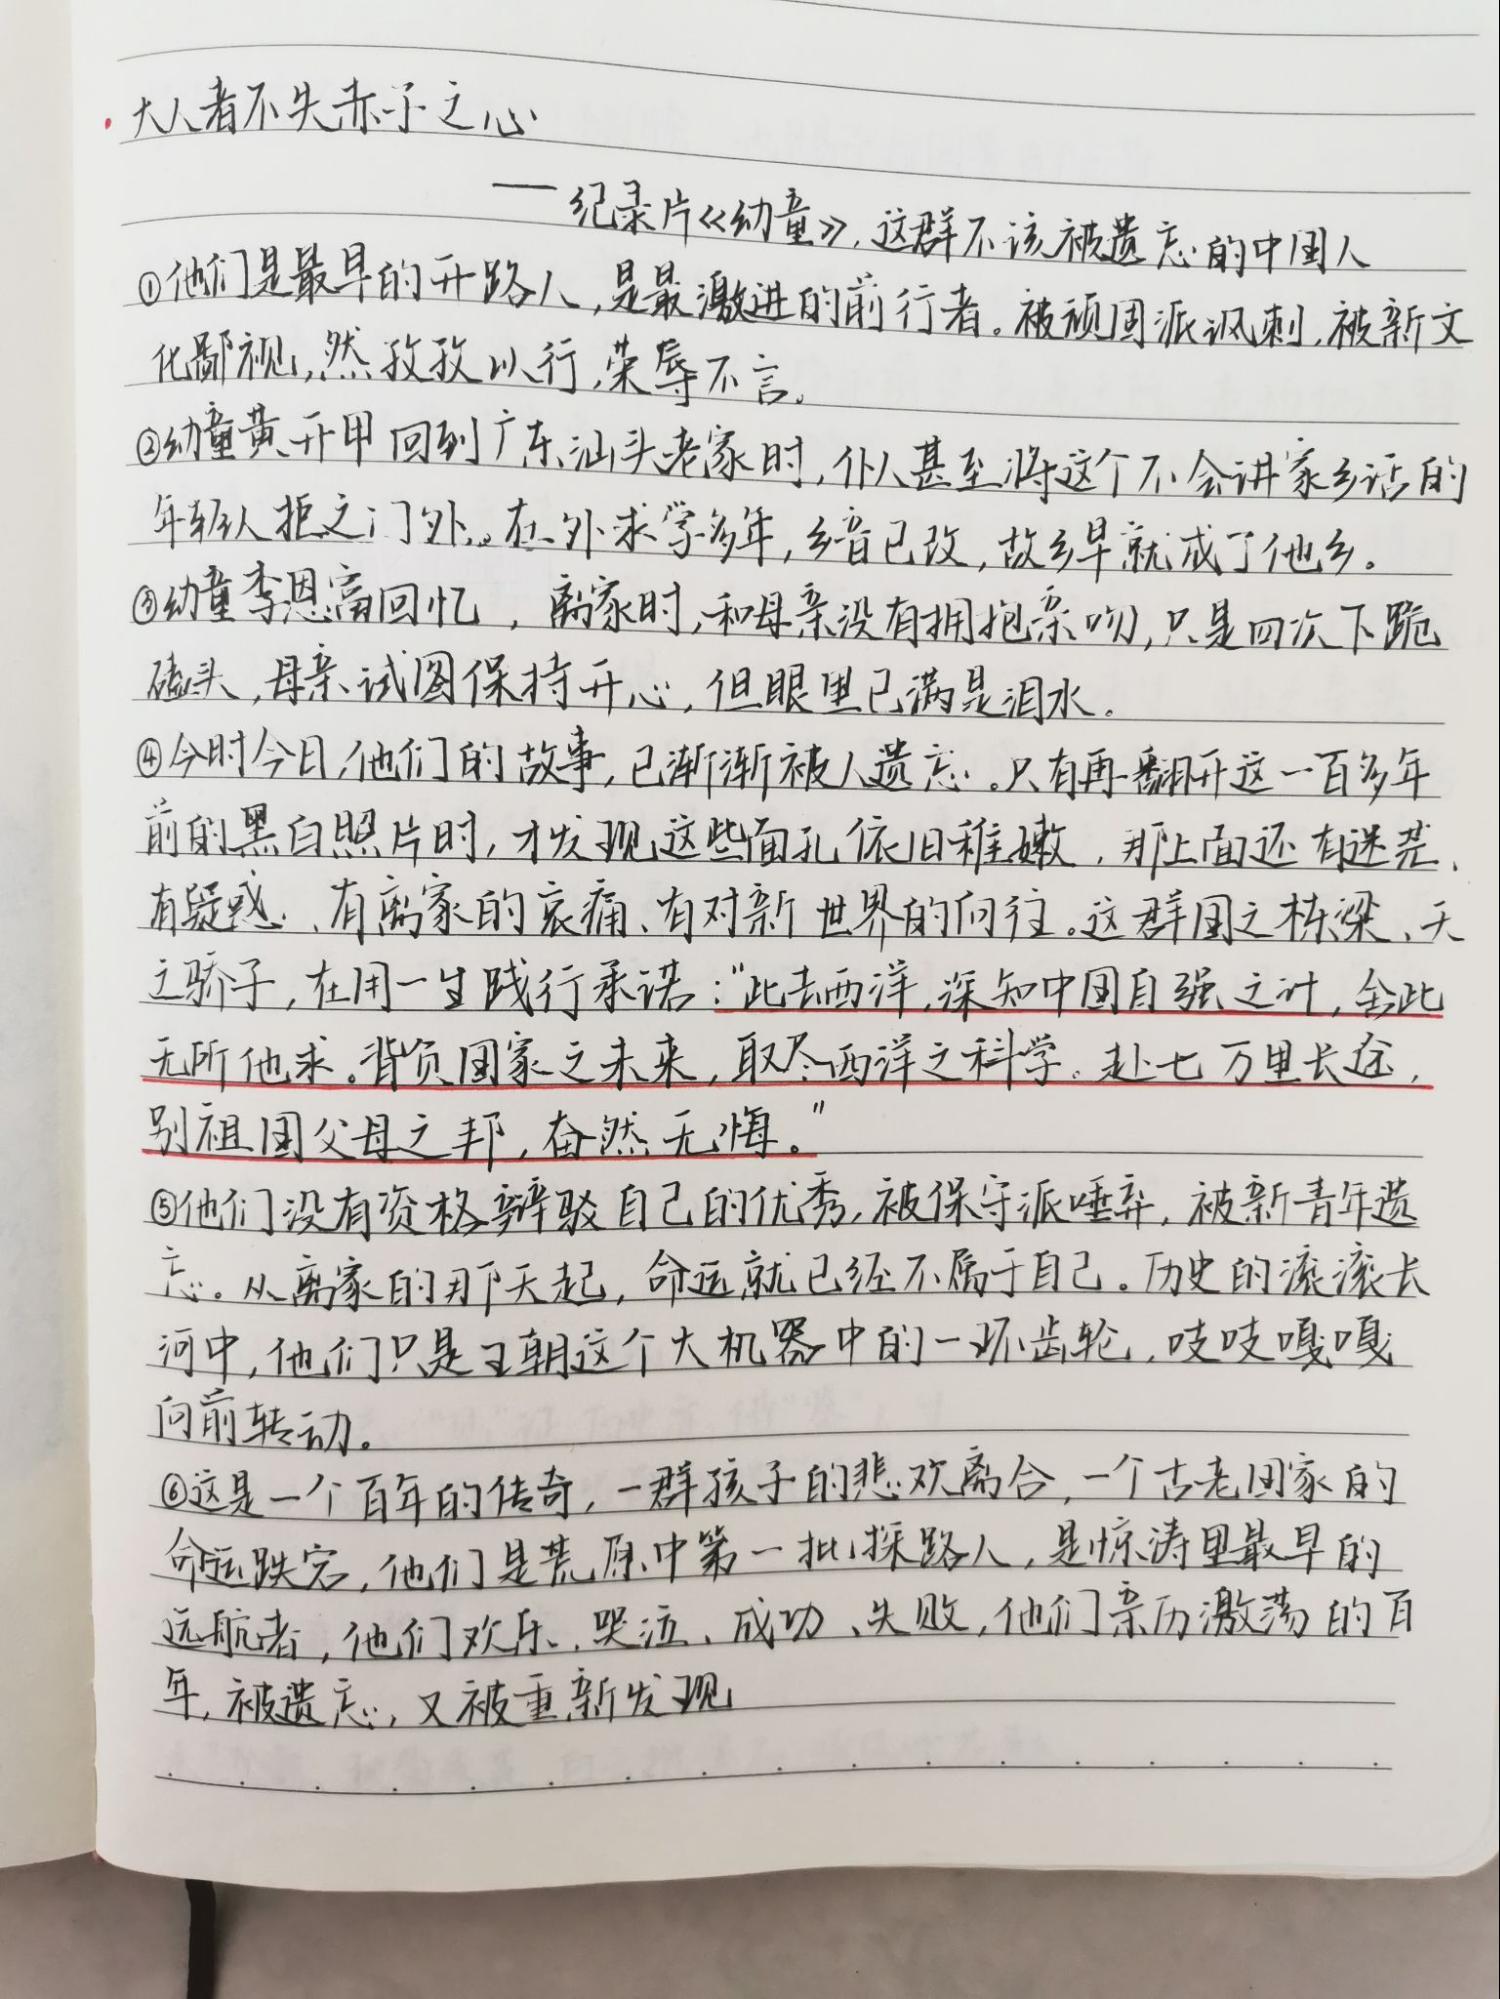 大人者不失赤子之心
——纪录片《幼童》,这群不该被遗忘的中国人
①他们是最早的开路人,是最激进的前行者。被顽固派讽刺,被新文
化鄙视,然孜孜以行,荣辱不言。
②幼童黄开甲回到广东汕头老家时,仆人甚至将这个不会讲家乡话的
年轻人拒之门外。在外求学多年,乡音已改,故乡早就成了他乡。
③幼童李恩富回忆,离家时,和母亲没有拥抱亲吻,只是四次下跪
磕头,母亲试图保持开心,但眼里已满是泪水。
④今时今日,他们的故事,已渐渐被人遗忘。只有再翻开这一百多年
前的黑白照片时,才发现这些面孔依旧稚嫩,那上面还有迷茫、
有疑惑、有离家的哀痛、有对新世界的向往。这群国之栋梁、天
之骄子,在用一生践行承诺:“此去西洋,深知中国自强之计,舍此
无所他求。背负国家之未来,取尽西洋之科学。赴七万里长途,
别祖国父母之邦,奋然无悔。”
⑤他们没有资格辩驳自己的优秀,被保守派唾弃,被新青年遗
忘。从离家的那天起,命运就已经不属于自己。历史的滚滚长
河中,他们只是王朝这个大机器中的一环齿轮,吱吱嘎嘎
向前转动。
⑥这是一个百年的传奇,一群孩子的悲欢离合,一个古老国家的
命运跌宕,他们是荒原中第一批探路人,是惊涛里最早的
远航者,他们欢乐、哭泣、成功、失败,他们亲历激荡的百
年,被遗忘,又被重新发现